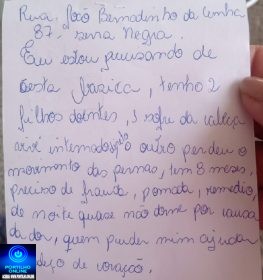 Rua João Bernadinho da Cunha
87. Serra Negra.
Eu estou precisando de
cesta basica, tenho 2
filhos doentes, 1 sofre da cabeça
vive internado, o outro perdeu o
movimento das pernas, tem 8 meses,
preciso de frauda, pomada, remedio,
de noite quase não dorme por causa
da dor, quem puder mim ajudar
peço de coração.
PORTILHO
ONLINE